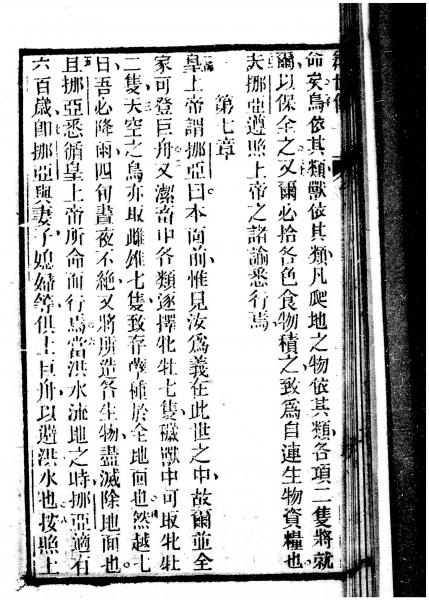 命矣鳥依其類獸依其類凡爬地之物依其類各項二隻將就
爾以保全之又爾必拾各色食物積之致爲自連生物資糧也
夫挪亞遵照上帝之諸諭悉行焉
第七章
皇上帝謂挪亞曰本面前惟見汝爲義在此世之中故爾並全
家可登巨舟又潔畜中各類逐擇牝牡七隻穢獸中可取牝牡
二隻天空之鳥亦取雌雄七隻致存厥種於全地面也然越七
日吾必降雨四旬晝夜不絕又將所造各生物盡滅除地面也
且挪亞悉循皇上帝所命而行焉當洪水流地之時挪亞適有
六百歲卽挪亞與妻子媳婦等俱上巨舟以避洪水也按照上